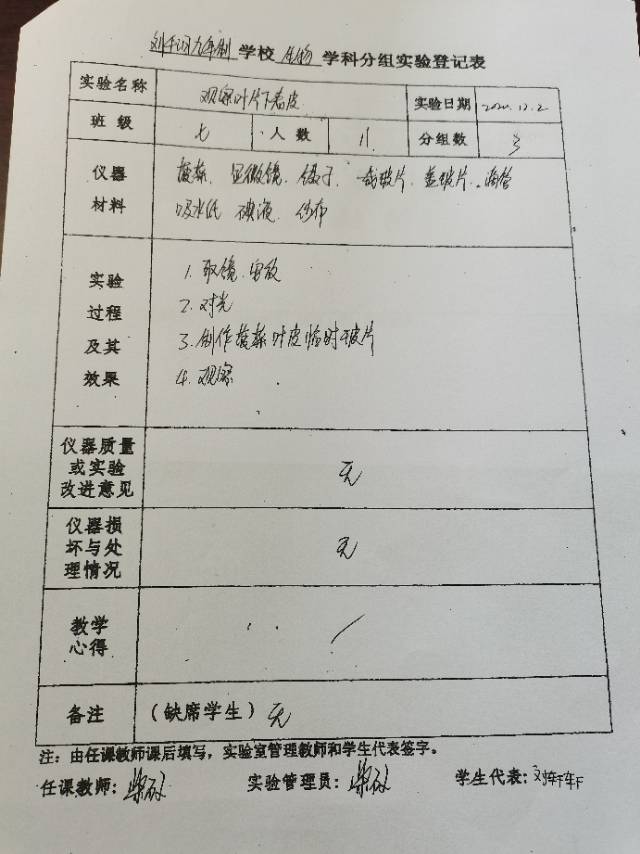 九年制 学校 生物 学科分组实验登记表
实验名称 观察叶片下表皮 实验日期 2020.12.2
班级 七 人数 11 分组数 3
仪器 显微镜. 镊子. 载玻片. 盖玻片. 滴管
材料 吸水纸 碘液. 纱布
实验 1. 取镜.安放
过程 2. 对光
及其 3. 制作 叶皮临时玻片
效果 4. 观察
仪器质量
或实验 无
改进意见
仪器损
坏与处 无
理情况
教学 /
心得
备注 (缺席学生) 无
注：由任课教师课后填写，实验室管理教师和学生代表签字。
任课教师: 实验管理员: 学生代表: